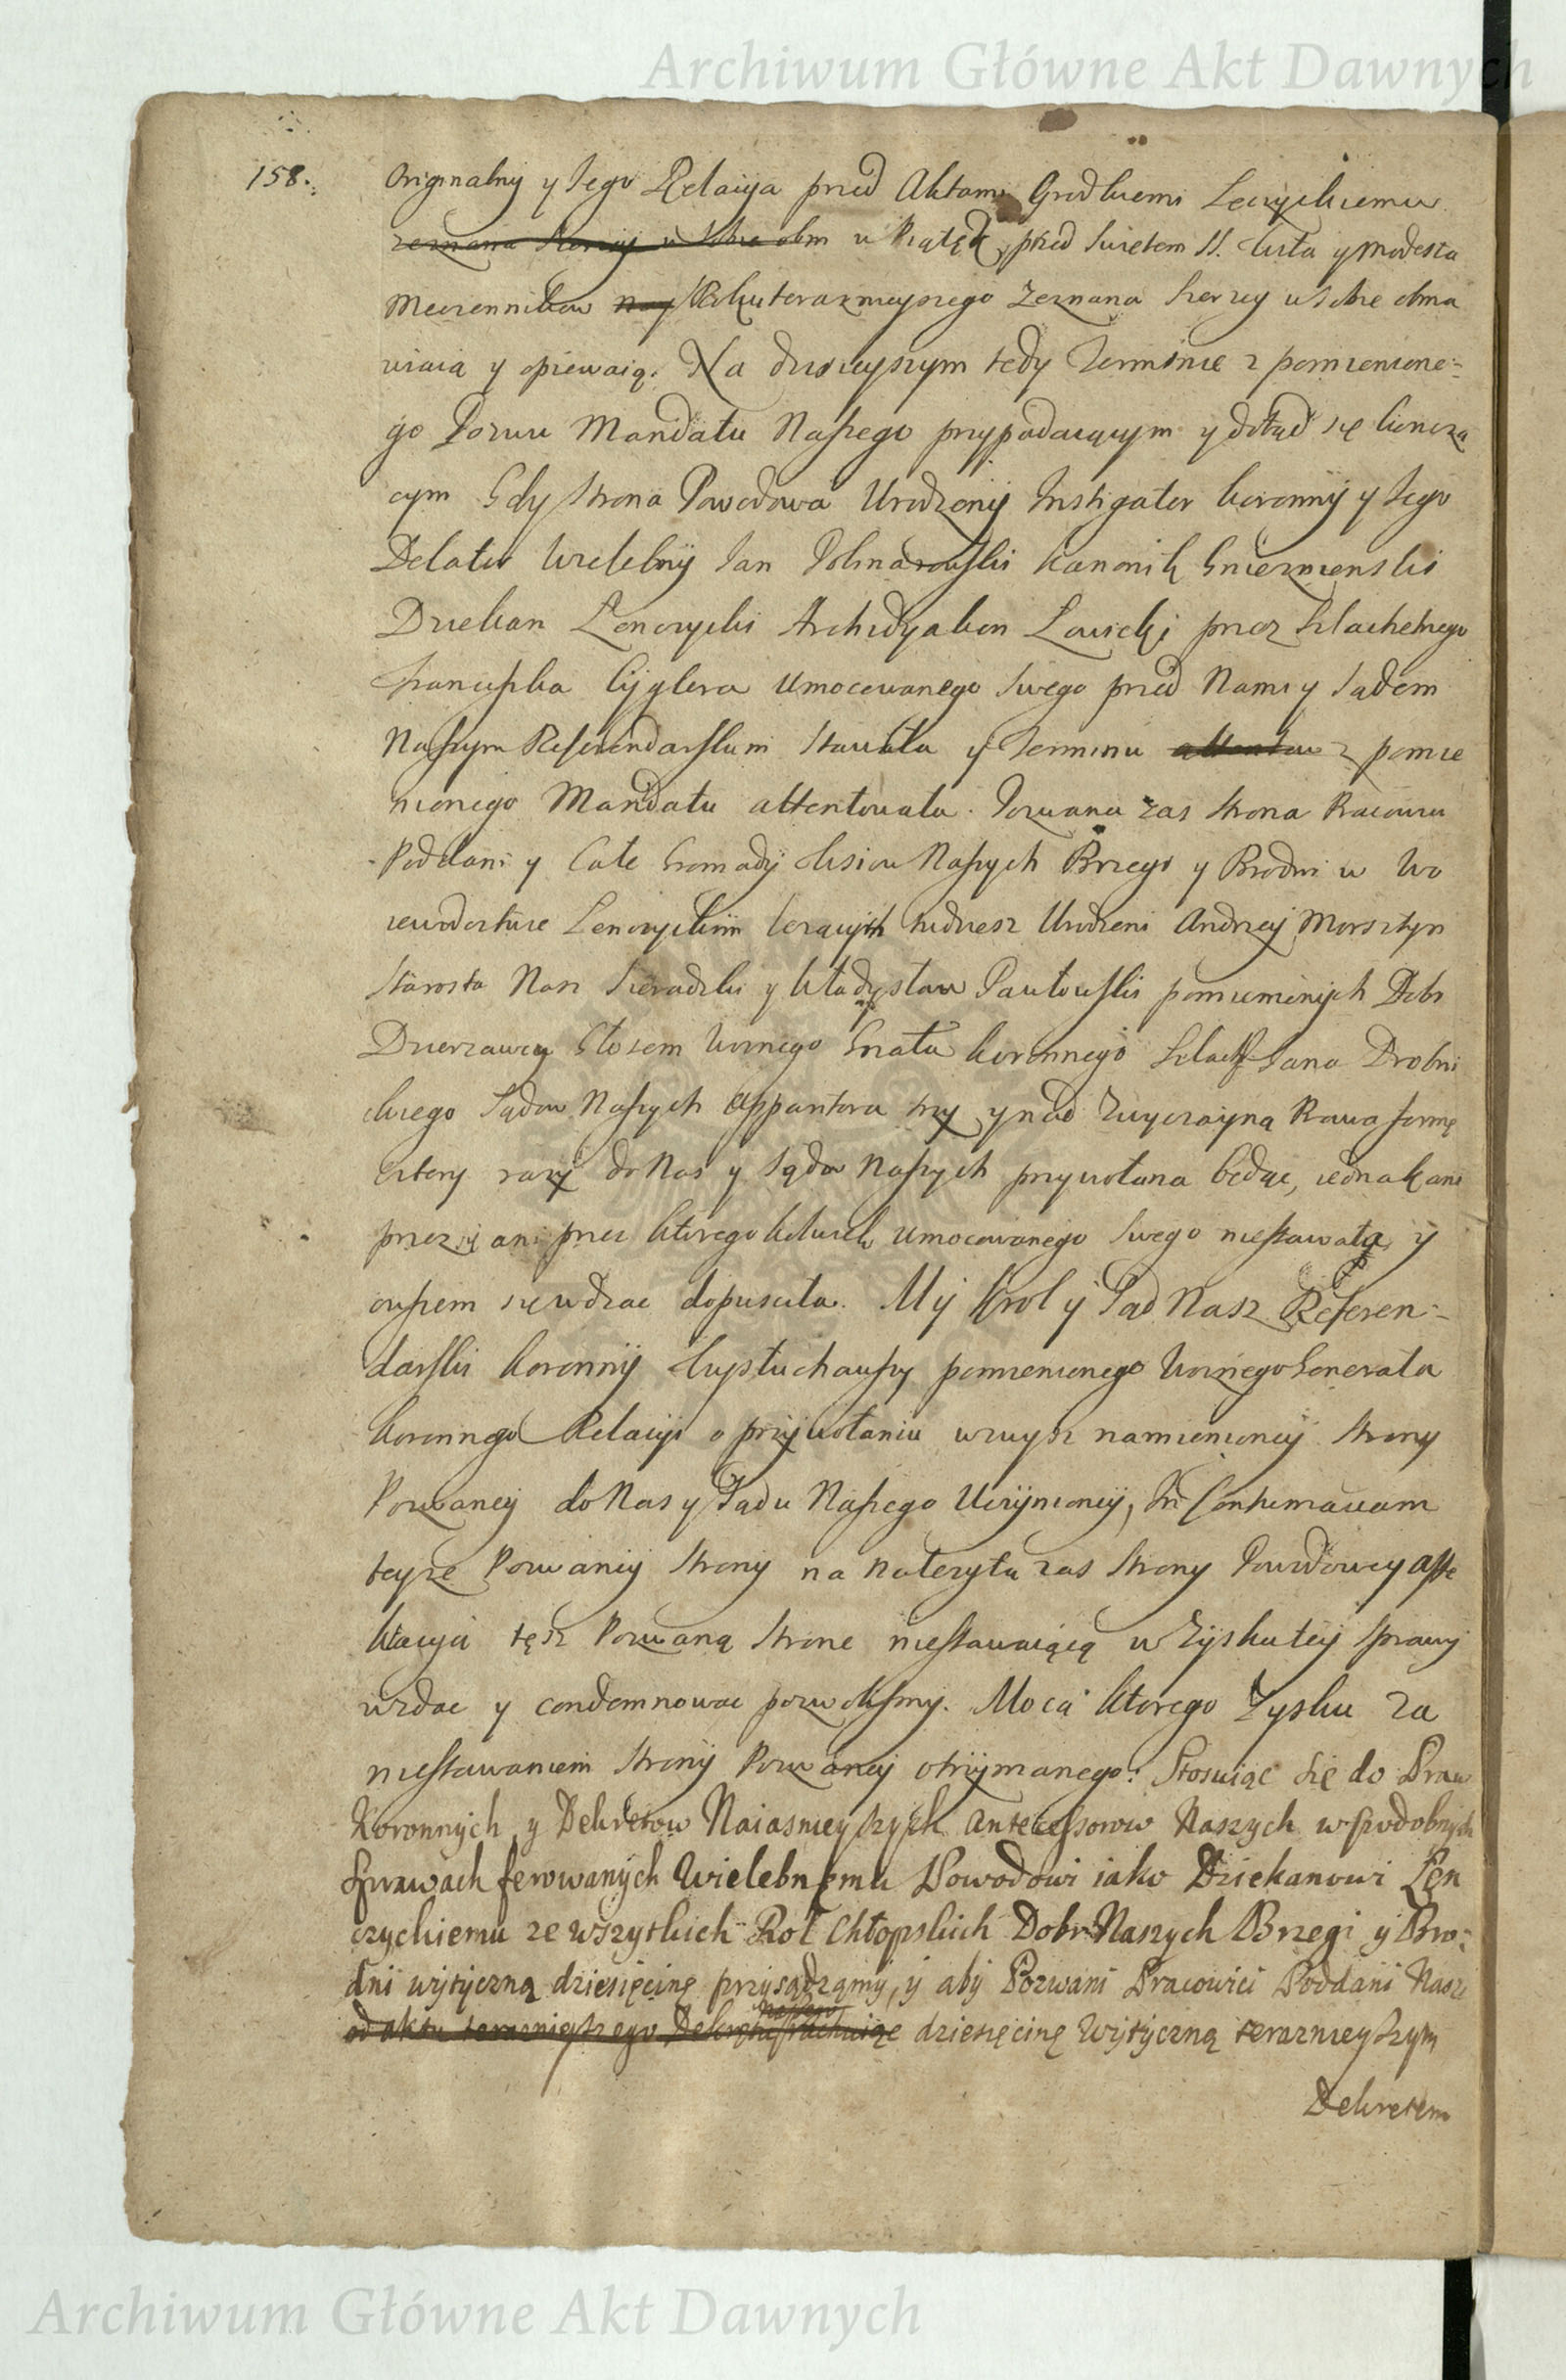 Archiwum Główne Akt Dawnych
158.
Originalny y Jego Relacyja przed Aktami Grodkiemi Leczyckiemu
zeznana szerzey w sobie obm w Piątek przed Swietem SS. Wita y Modesta
Meczennikow Roku teraznieyszego zeznana szerzey w sobie obma
wiaią y opiewaią. Na dzisieyszym tedy Terminie z pomienione-
go Pozwu Mandatu Naszego przypadaiącym y dotąd się koncza
cym Gdy Strona Powodowa Urodzony Instigator koronny y Jego
Delator Wielebny Jan kanonik Gnieznienski
Dziekan Lenczycki Archidyakon Lowicki przez Szlachetnego
Franciszka Cyglera Umocowanego Swego przed Nami y Sądem
Naszym Referendarskim stawała y Terminu z pomie
nionego Mandatu attentowała. Pozwana zas Strona Pracowici
Poddani y Cale Gromady Wsiow Naszych Brzegi y Brodni w Wo
iewodztwie Lenczyckim lezących tudziesz Urodzeni Andrzej Morsztyn
Starosta Nasz Sieradzki y Władysław Pawłowski pomienionych Dobr
Dzierzawcy Głosem Woznego Gnała koronnego Szlach Jana Drobni
ckiego Sądow Naszych Apparitora trzy y nad zwyczayną Prawa formę
cztery razy do Nas y Sądow Naszych przywołana będąc, iednak ani
przez się ani przez ktoregokolwiek Umocowanego Swego niestawała y
owszem się wzdac dopusciła. My Krol y Sąd Nasz Referen-
darski koronny Wysłuchawszy pomienionego Woznego Generała
koronnego Relacyi o przywołaniu wzwysz namienioney Strony
Pozwaney do Nas y Sądu Naszego Uczynioney, In Contumaciam
teyze Pozwaney Strony na należytą zas Strony Powodowey affe
ktacyą tęsz Pozwaną Strone niestawaiącą w zysku tey Sprawy
wzdac y condemnowac pozwolismy. Mocą ktorego zysku za
niestawaniem Strony Pozwaney otrzymanego: Stosuiąc Się do Praw
Koronnych y Dekretow Naiasnieyszych Antecessorow Naszych w podobnych
Sprawach ferowanych Wielebnemu Powodowi iako Dziekanowi Len
czyckiemu ze wszytkich Rol Chłopskich Dobr Naszych Brzegi y Bro-
dni wytyczną dziesięcinę przysądzamy, y aby Pozwani Pracowici Poddani Nasi
naszego
od aktu teraznieyszego Dekretu rachuiąc dziesięcinę Wytyczną teraznieyszym
Dekretem
Archiwum Główne Akt Dawnych